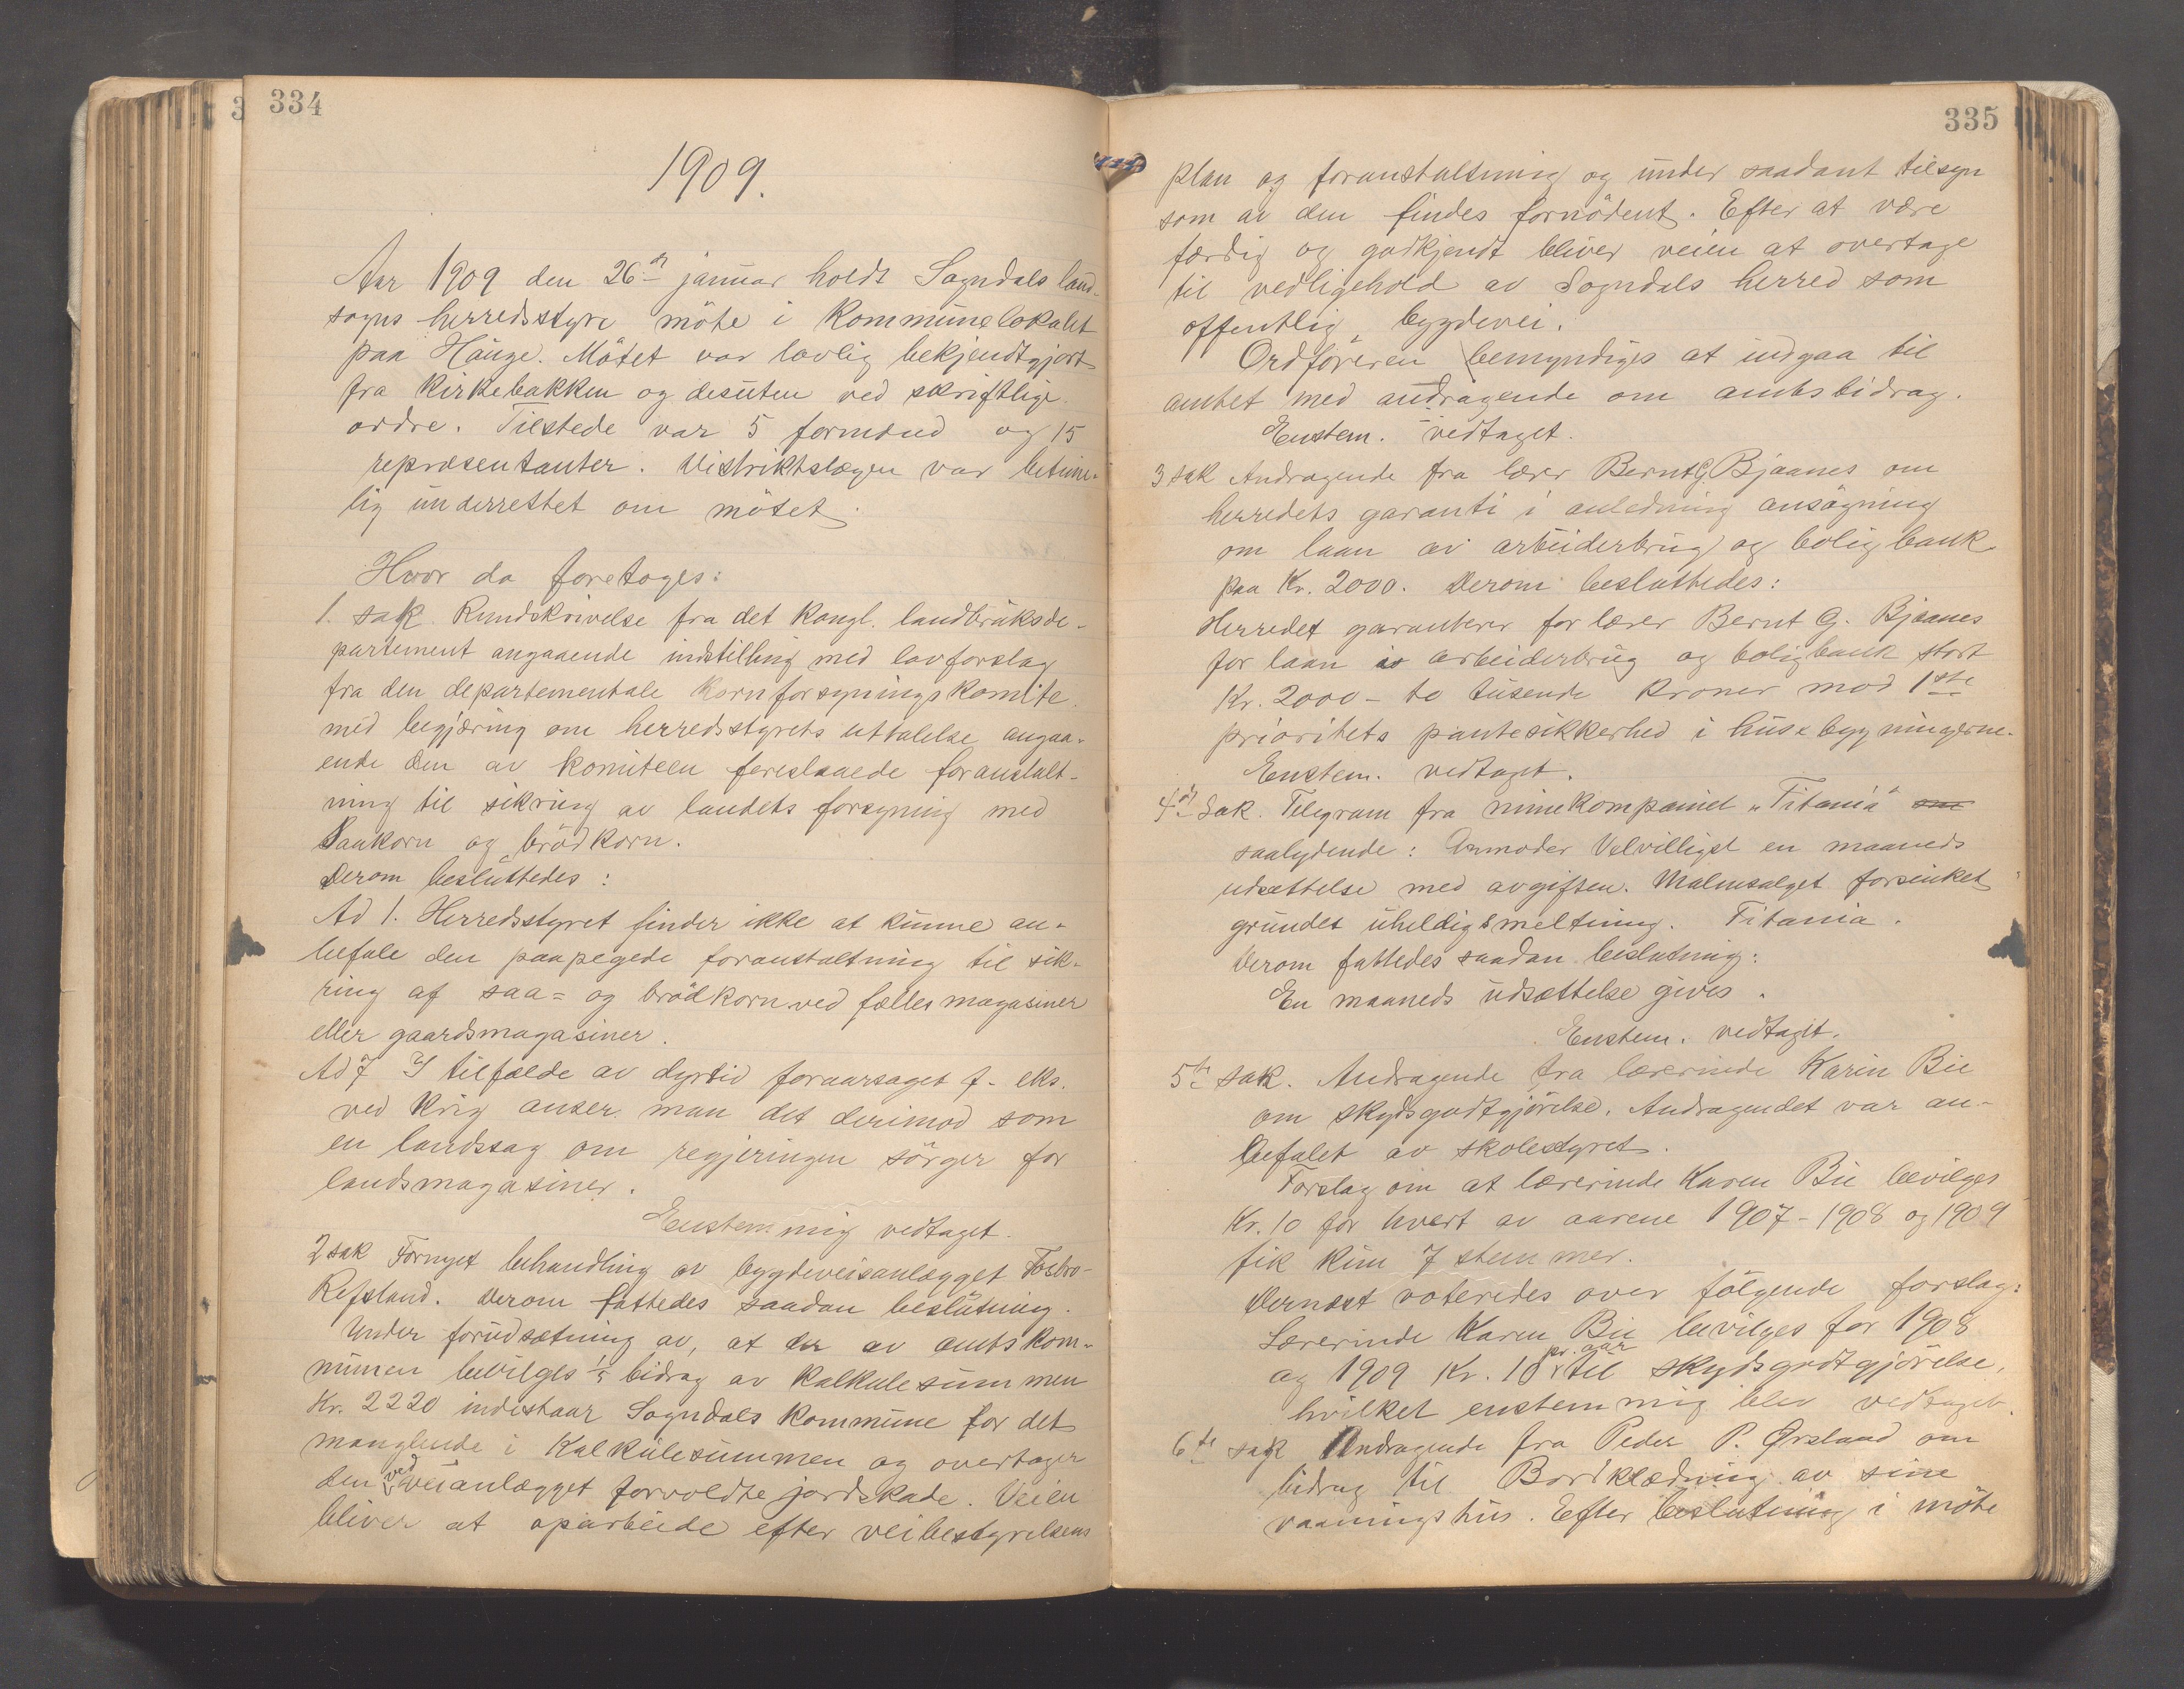 334
1909.
Aar 1909 den 26de januar holdt Sogndals land-
sogns herredsstyre möte i Kommunelokalet
paa Hauge. Mötet var lovlig bekjendtgjort
fra Kirkebakken og desuten ved skriftlige
ordre. Tilstede var 5 formænd og 15
repræsentanter. Distriktslægen var betime-
lig underrettet om mötet.
Hvor da foretoges:
1. sak. Rundskrivelse fra det kongl. landbruksde-
partement angaaende indstilling med lovforslag
fra den departementale Kornforsyningskomite
med begjæring om herredsstyrets uttalelse angaa-
ende den av komiteen foreslaaede foranstalt-
ning til sikring av landets forsyning med
Saakorn og brödkorn.
Derom besluttedes:
Ad 1. Herredsstyret finder ikke at kunne an-
befale den paapegede foranstaltning til sik-
ring af saa= og brödkorn ved fælles magasiner
eller gaardsmagasiner.
Ad 7 I tilfælde av dyrtid foraarsaget f. eks.
ved krig anser man det derimod som
en landssag om regjeringen sörger for
landsmagasiner.
Enstemmig vedtaget.
2 sak Fornyet behandling av bygdeveisanlægget Fosbro-
Refsland. Derom fattedes saadan beslutning.
Under forudsætning av, at der av amtskom-
munen bevilges 1/5 bidrag av Kalkulesummen
Kr. 2220 indestaar Sogndals Kommune for det
manglende i Kalkulesummen og overtager
den ved veianlægget forvoldte jordskade. Veien
bliver at oparbeide efter veibestyrelsens
335
plan og foranstaltning og under saadant tilsyn
som av den findes fornödent. Efter at være
færdig og godkjendt bliver veien at overtage
til vedligehold av Sogndals herred som
offentlig bygdevei.
Ordföreren bemyndiges at indgaa til
amtet med andragende om amtsbidrag.
Enstem. vedtaget.
3 sak Andragende fra lærer Bernt G. Bjaanes om
herredets garanti i anledning ansögning
om laan av arbeiderbrug og boligbank
paa Kr. 2000. Derom besluttedes:
Herredet garanterer for lærer Bernt G. Bjaanes
for laan i arbeiderbrug og boligbank stort
Kr. 2000 - to tusende kroner mod 1ste
prioritets pantesikkerhed i husebygningerne.
Enstem. vedtaget.
4de Sak. Telegram fra minekompaniet "Titania" om
saalydende: Anmoder Velvilligst en maaneds
udsættelse med avgiften. Malmsalget forsinket
grundet uheldig smeltning. Titania.
Derom fattedes saadan beslutning:
En maaneds udsættelse gives.
Enstem. vedtaget.
5te sak. Andragende fra lærerinde Karin Bie
om skydsgodtgjörelse. Andragendet var an-
befalet av skolestyret.
Forslag om at lærerinde Karen Bie bevilges
Kr. 10 for hvert av aarene 1907-1908 og 1909
fik kun 7 stemmer.
Dernæst voteredes over fölgende forslag:
Lærerinde Karen Bie bevilges for 1908
og 1909 Kr. 10 pr. aar til skydsgodtgjörelse,
hvilket enstemmig blev vedtaget.
6te sak Andragende fra Peder P. Ørsland om
bidrag til Bordklædning av sine
vaaningshus. Efter beslutning i möte